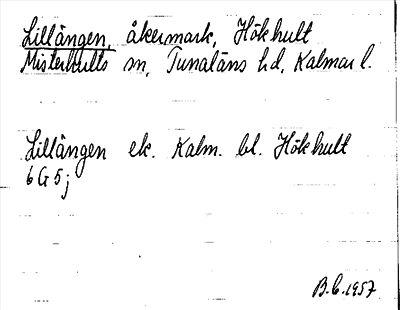 Lillängen, åkermark, Hökhult
Misterhults sn, Tunaläns hd, Kalmar l.
Lillängen ek. Kalm. bl. Hökhult
6G5j
B.C.1957